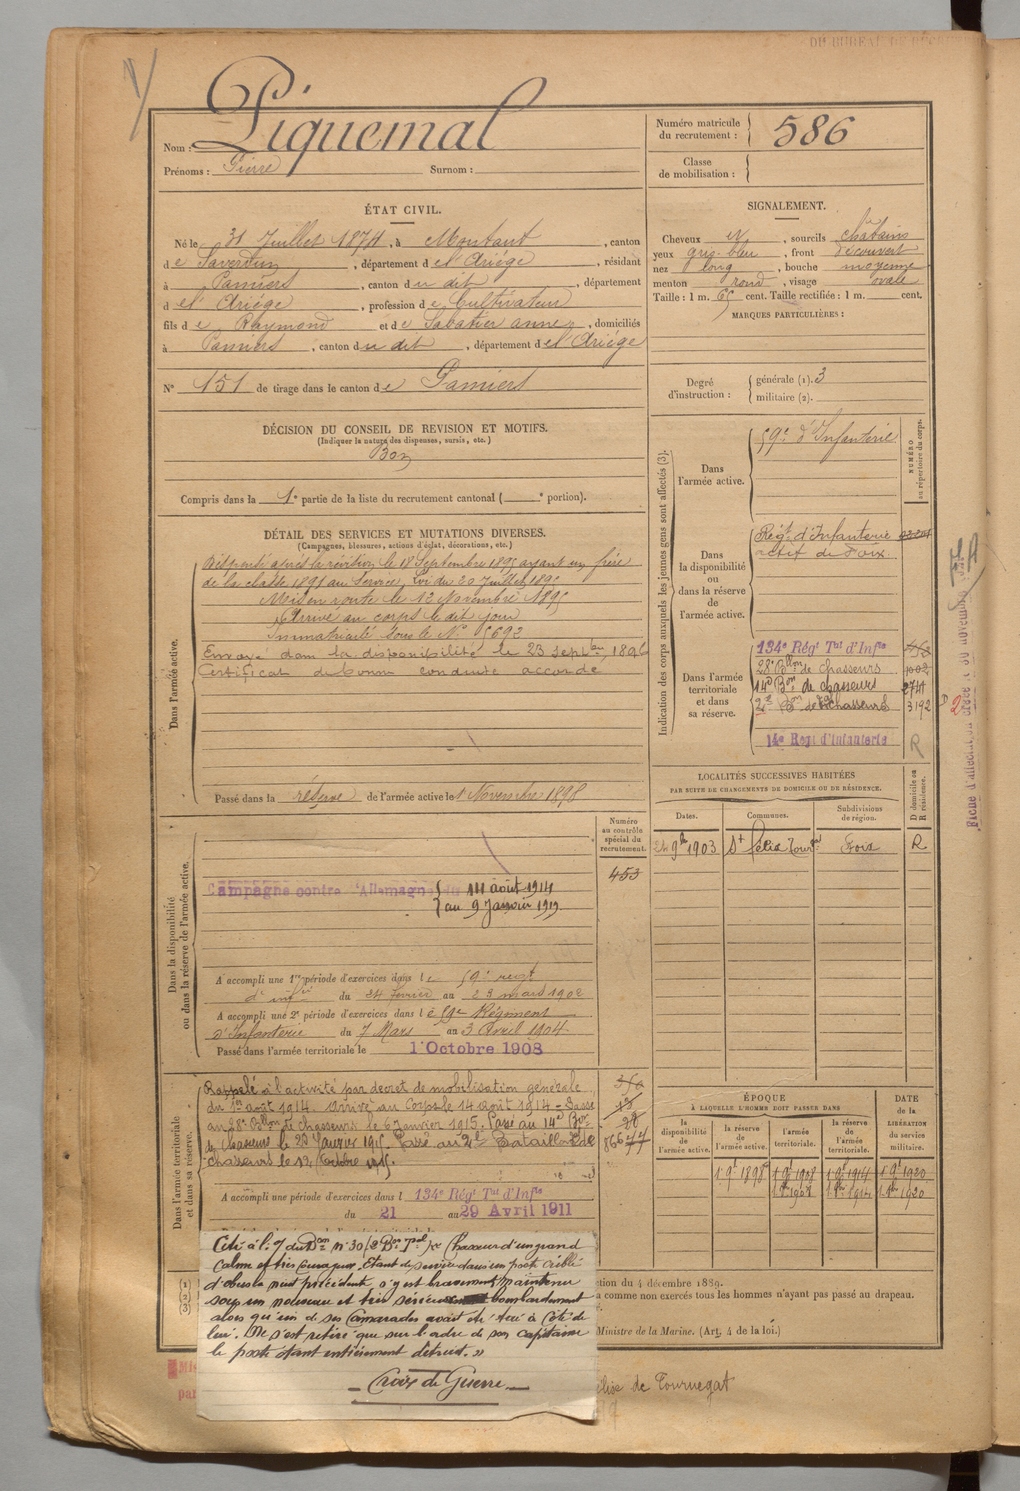 Piquemal
Nom :
Prénoms : Pierre Surnom :
Numéro matricule du recrutement : 586
Classe de mobilisation :
ÉTAT CIVIL.
Né le 31 Juillet 1874, à Montaut, canton
de Saverdun, département de l'Ariège, résidant
à Pamiers, canton du dit, département
de l'Ariège, profession de Cultivateur
fils de Raymond et de Sabatier Anne, domiciliés
à Pamiers, canton du dit, département de l'Ariège
N° 151 de tirage dans le canton de Pamiers
SIGNALEMENT.
Cheveux et, sourcils châtains
yeux gris-bleu, front découvert
nez long, bouche moyenne
menton rond, visage ovale
Taille : 1 m. 65 cent. Taille rectifiée : 1 m. cent.
MARQUES PARTICULIÈRES :
Degré d'instruction : générale (1). 3
militaire (2).
DÉCISION DU CONSEIL DE REVISION ET MOTIFS.
(Indiquer la nature des dispenses, sursis, etc.)
Bon
Compris dans la 1e partie de la liste du recrutement cantonal ( e portion).
DÉTAIL DES SERVICES ET MUTATIONS DIVERSES.
(Campagnes, blessures, actions d'éclat, décorations, etc.)
Dans l'armée active.
Dispensé après la révision le 18 Septembre 1895 ayant un frère
de la classe 1895 au Service, Loi du 20 Juillet 1895
Mis en route le 12 Novembre 1895
Arrivé au corps le dit jour
Immatriculé sous le N° 5692
Envoyé dans la disponibilité le 23 septbre 1896
Certificat de bonne conduite accordé
Passé dans la réserve de l'armée active le 1 Novembre 1898
Indication des corps auxquels les jeunes gens sont affectés (3).
NUMÉRO au répertoire du corps.
Dans l'armée active.
59e d'Infanterie
Dans la disponibilité ou dans la réserve de l'armée active.
Régt d'Infanterie
actif de Foix.
Dans l'armée territoriale et dans sa réserve.
134e Régt Tal d'Infie
28e Bllon de chasseurs 1002
14e Bon de chasseurs 2741
2e Bon de chasseurs 3192
14e Régt d'Infanterie R
LOCALITÉS SUCCESSIVES HABITÉES
PAR SUITE DE CHANGEMENTS DE DOMICILE OU DE RÉSIDENCE.
Dates. Communes. Subdivisions de région. D domicile ou R résidence.
24 9bre 1903 St Félix Tourgat Foix R
Dans la disponibilité ou dans la réserve de l'armée active.
Numéro au contrôle spécial du recrutement.
453
Campagne contre l'Allemagne du 14 août 1914
au 9 Janvier 1919
A accompli une 1re période d'exercices dans le 59e regt
d'infie du 24 février au 23 mars 1902
A accompli une 2e période d'exercices dans le 59e Régiment
d'Infanterie du 7 Mars au 3 Avril 1904.
Passé dans l'armée territoriale le 1 Octobre 1908
Dans l'armée territoriale et dans sa réserve.
Rappelé à l'activité par décret de mobilisation générale
du 1er août 1914. Arrivé au Corps le 14 août 1914 - Passé
au 28e Bllon de chasseurs le 6 janvier 1915. Passé au 14e Bon
de chasseurs le 23 Janvier 1915. Passé au 2e Bataillon de
chasseurs le 12 Octobre 1915.
A accompli une période d'exercices dans l 134e Régt Tal d'Infie
du 21 au 29 Avril 1911
ÉPOQUE
À LAQUELLE L'HOMME DOIT PASSER DANS
la disponibilité de l'armée active. la réserve de l'armée active. l'armée territoriale. la réserve de l'armée territoriale.
DATE de la LIBÉRATION du service militaire.
1 9bre 1898 1 9bre 1908 1 9bre 1914 1 9bre 1920
1 8bre 1908 1 8bre 1914 1 8bre 1920
Cité à l'o/ du Bon n° 30 (2e Bon Tal) « Chasseur d'un grand
calme et très courageux. Etant de service dans un poste criblé
d'obus la nuit précédente, s'y est bravement maintenu
sous un nouveau et très sérieux bombardement
alors qu'un de ses camarades avait été tué à côté de
lui. Ne s'est retiré que sur l'ordre de son capitaine
le poste étant entièrement détruit. »
Croix de Guerre
ction du 4 décembre 1889.
a comme non exercés tous les hommes n'ayant pas passé au drapeau.
Ministre de la Marine. (Art. 4 de la loi.)
de Tournegat